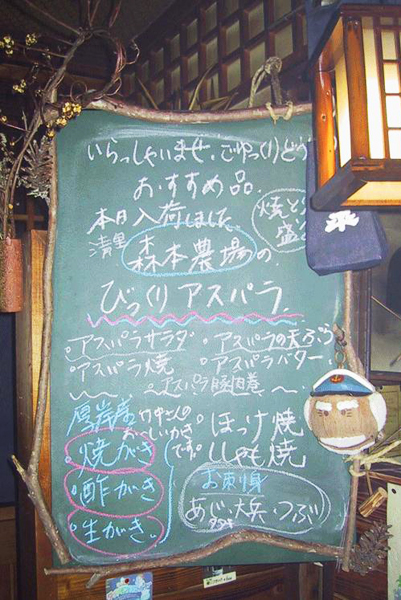 いらっしゃいませ。ごゆっくりどう
おすすめ品
本日入荷しました
焼とり
盛
清里
森本農場の
びっくりアスパラ
・アスパラサラダ
・アスパラの天ぷら
・アスパラ焼
・アスパラバター
・アスパラ豚肉巻
厚岸産
おいしいかき
です。
焼がき
酢がき
生がき
ほっけ焼
ししゃも焼
お刺身
あじ・大兵・つぶ
タタキ